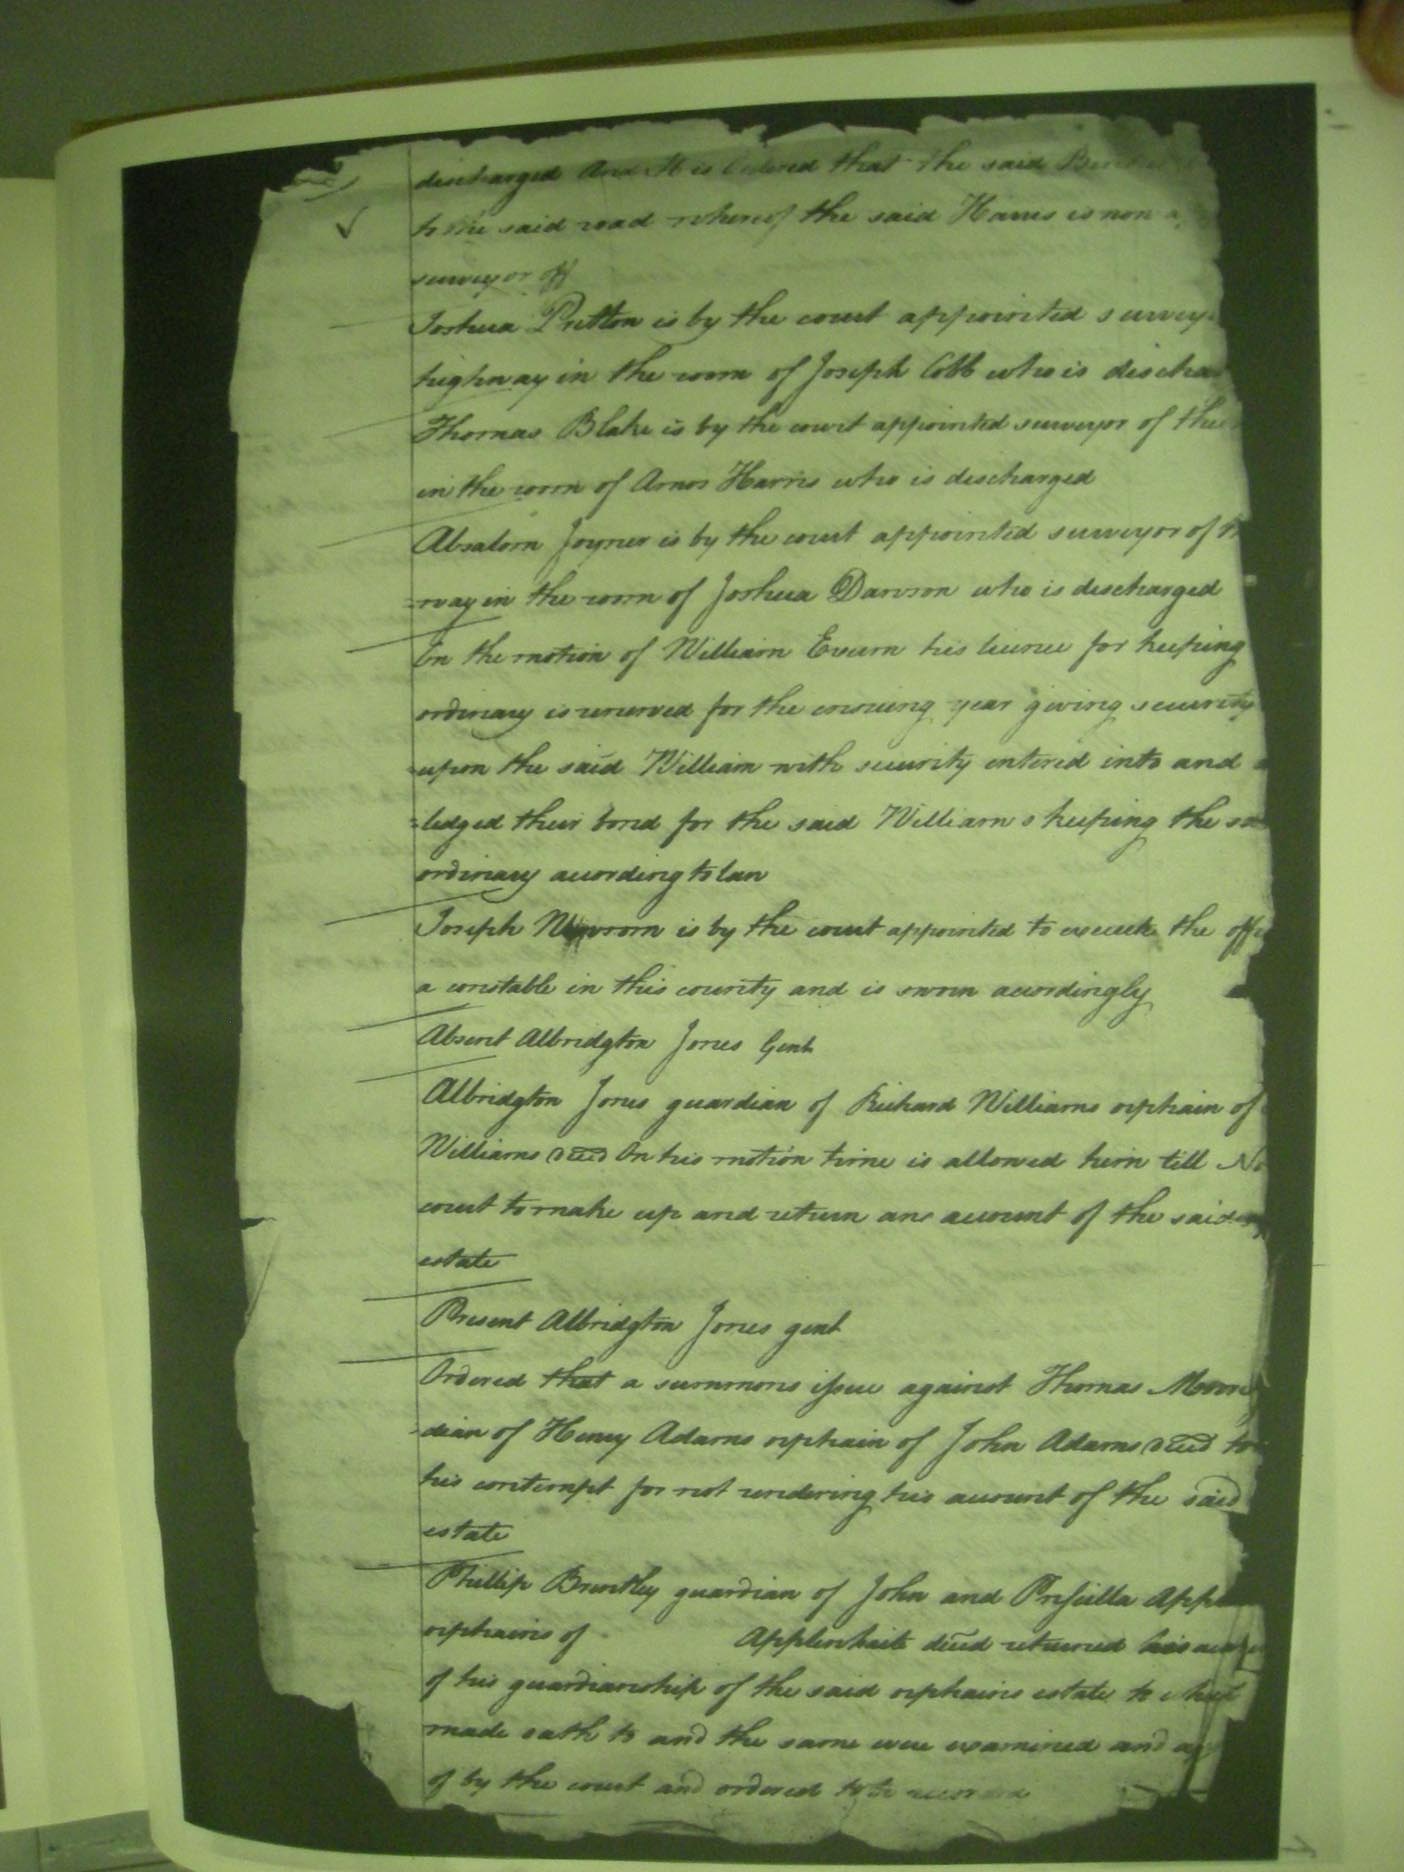 discharged And It is Ordered that the said
to the said road whereof the said Harris is now
surveyor of
Joshua Pretlon is by the court appointed survey
highway in the room of Joseph Cobb who is discha
Thomas Blake is by the court appointed surveyor of the
in the room of Amos Harris who is discharged
Absalom Joyner is by the court appointed surveyor of th
=way in the room of Joshua Dawson who is discharged
On the motion of William Exum his licence for keeping
ordinary is renewed for the ensuing year giving security
upon the said William with security entered into and a
=ledged their bond for the said Williams keeping the sa
ordinary according to law
Joseph Newsom is by the court appointed to execute the offi
a constable in this county and is sworn accordingly
Absent Albridgton Jones Gent
Albridgton Jones guardian of Richard Williams orphain of
Williams decd On his motion time is allowed him till No
court to make up and return an account of the said
estate
Present Albridgton Jones gent
Ordered that a summons issue against Thomas
-dian of Henry Adams orphain of John Adams decd to
his contempt for not rendering his account of the said
estate
Phillip Brantley guardian of John and Priscilla App
orphains of Applewhaite decd returned his
of his guardianship of the said orphains estate to which
made oath to and the same were examined and
of by the court and ordered to be recorded